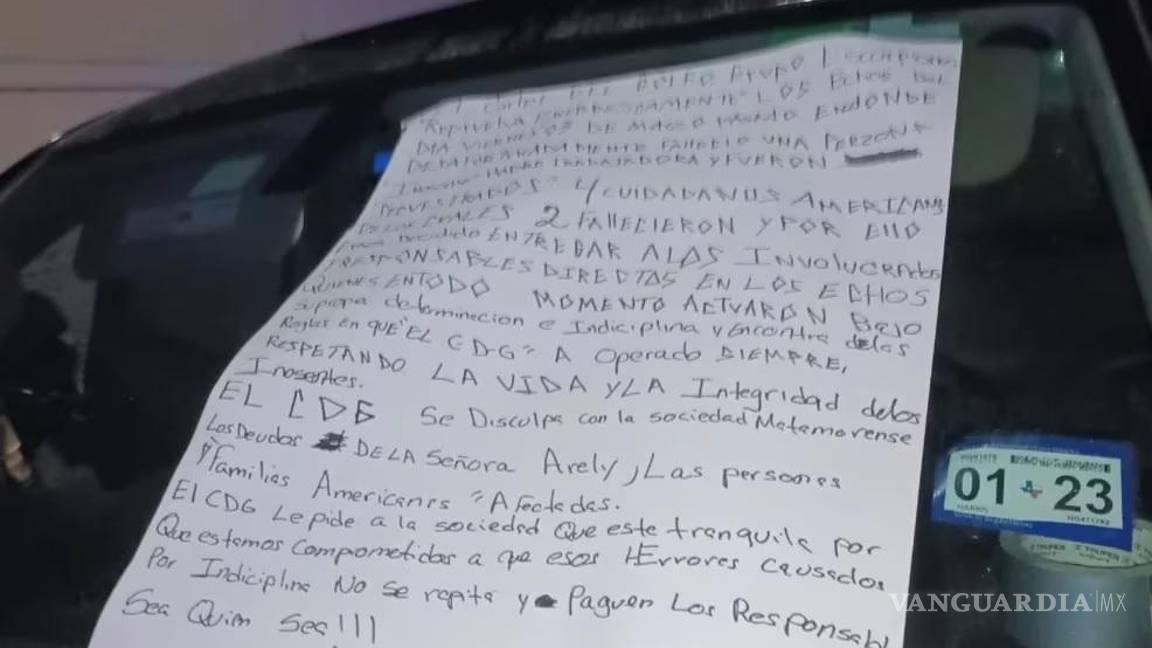 El Cartel del Golfo Grupo Escorpiones
"Reprueba ENERGICAMENTE" LOS Echos Del
DIA VIERNES 03 DE MARZO EN DONDE
UNA PERZONA
TRABAJADORA Y FUERON
4 CUIDADANOS AMERICANS
2 FALLECIERON Y POR EllO
decidido ENTREGAR A LOS INVOLUCRADOS
RESPONSABLES DIRECTOS EN LOS ECHOS
QUIENES EN TODO MOMENTO ACTUARON BAJO
su propia determinacion e Indiciplina y Encontra delas
Reglas En QUE "EL CDG" A Operado SIEMPRE,
RESPETANDO LA VIDA Y LA Integridad delos
Inosentes.
EL CDG Se Disculpa con la sociedad Matamorense
Los Deudos DE LA Señora Arely, Las personas
y Familias Americanas "Afectadas.
El CDG Le pide a la sociedad Que este tranquila por
Que estamos Comprometidos a que esos Errores causados
Por Indiciplina No se repita y Paguen Los Responsabl
Sea Quim Sea!!!
01 23
VANGUARDIA|MX